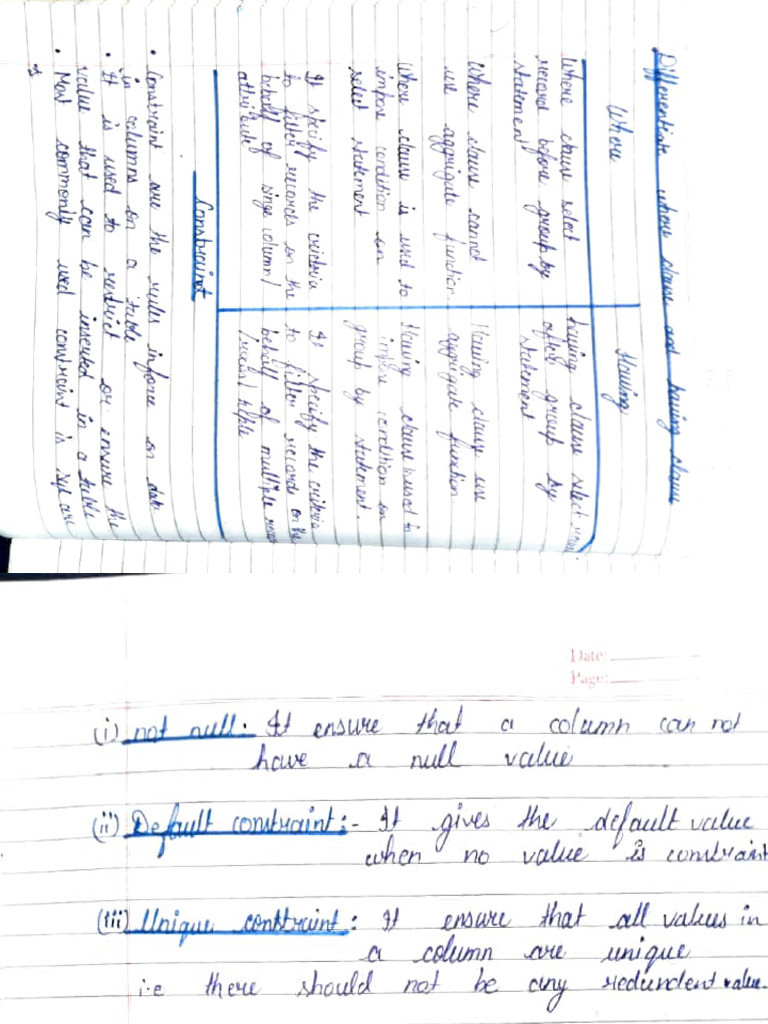 Differentiate where clause and having clause
Where
Having
Where clause select
record before group by
statement
having clause select row
after group by
statement
Where clause cannot
use aggrigate function.
Having clause use
aggrigate function
Where clause is used to
impose condition on
select statement
Having clause is used to
impose condition on
group by statement.
It specify the criteria
to filter records on the
behalf of singe column/
attribute
It specify the criteria
to filter records on the
behalf of multiple rows
/records/tuple
Constraint
• Constraint are the rules inforce on data
in columns on a table
• It is used to restrict or ensure the
value that can be inserted in a table
• Most commonly used constraint in sql are
:-
Date:
Page:
(i) not null:- It ensure that a column can not
have a null value
(ii) Default constraint:- It gives the default value
when no value is constraint
(iii) Unique constraint: It ensure that all values in
a column are unique
i.e there should not be any redundent value.